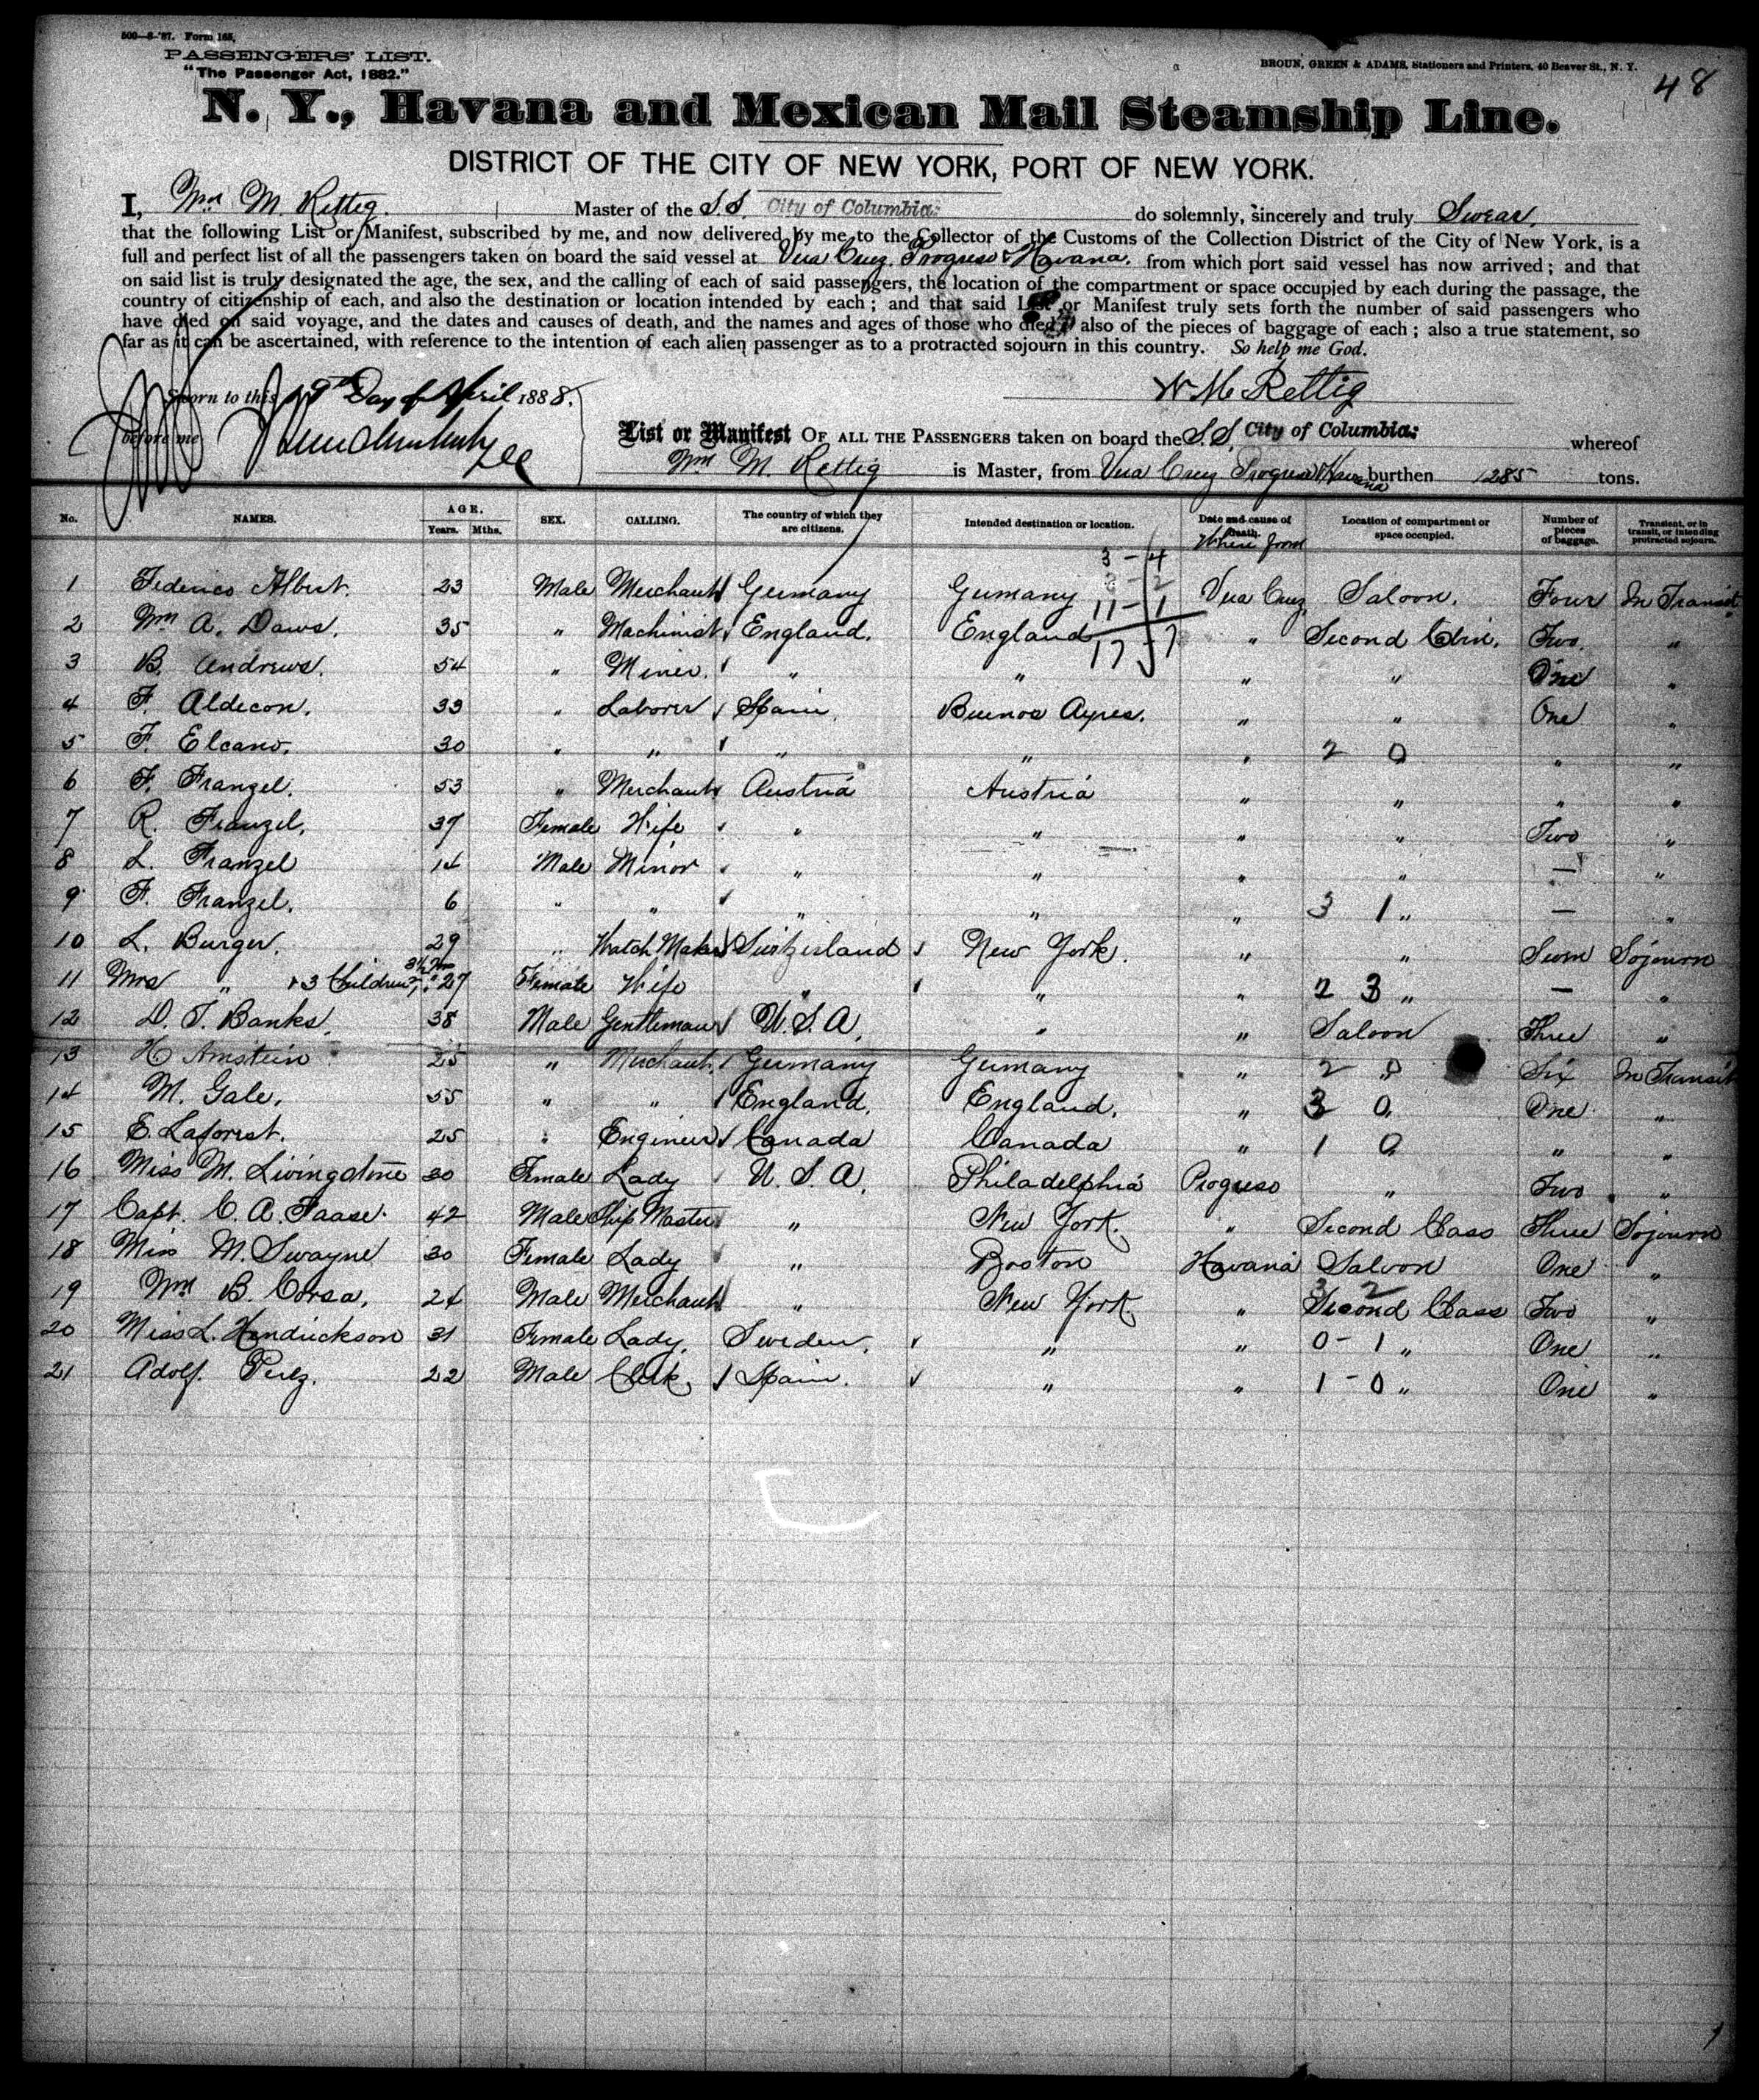 500—8—'87. Form 165.
PASSENGERS' LIST.
"The Passenger Act, 1882."
BROUN, GREEN & ADAMS, Stationers and Printers, 40 Beaver St., N. Y.
48
N. Y., Havana and Mexican Mail Steamship Line.
DISTRICT OF THE CITY OF NEW YORK, PORT OF NEW YORK.
I, Wm M. Rettig. Master of the S.S. City of Columbia. do solemnly, sincerely and truly Swear,
that the following List or Manifest, subscribed by me, and now delivered by me to the Collector of the Customs of the Collection District of the City of New York, is a
full and perfect list of all the passengers taken on board the said vessel at Vera Cruz, Progreso & Havana. from which port said vessel has now arrived; and that
on said list is truly designated the age, the sex, and the calling of each of said passengers, the location of the compartment or space occupied by each during the passage, the
country of citizenship of each, and also the destination or location intended by each; and that said List or Manifest truly sets forth the number of said passengers who
have died on said voyage, and the dates and causes of death, and the names and ages of those who died; also of the pieces of baggage of each; also a true statement, so
far as it can be ascertained, with reference to the intention of each alien passenger as to a protracted sojourn in this country. So help me God.
Sworn to this 19th Day of April 1888.
W M Rettig
before me
List or Manifest OF ALL THE PASSENGERS taken on board the S.S. City of Columbia: whereof
Wm M. Rettig is Master, from Vera Cruz Progreso & Havana burthen 1285 tons.
No. NAMES. AGE. Years. Mths. SEX. CALLING. The country of which they are citizens. Intended destination or location. Date and cause of Death. Where from Location of compartment or space occupied. Number of pieces of baggage. Transient, or in transit, or intending protracted sojourn.
3 - 4
2 - 2
11 - 1
17 7
1 Federico Albert. 23 Male Merchant Germany Germany Vera Cruz Saloon. Four In Transit
2 Wm A. Daws. 35 " Machinist England. England " Second Cbin. Two. "
3 B. Andrews. 54 " Miner. " " " " One "
4 F. Aldecon. 33 " Laborer Spain. Buenos Ayres. " " One "
5 F. Elcano. 30 " " " " " 2 0 " "
6 F. Franzel. 53 " Merchant Austria Austria " " " "
7 R. Franzel. 37 Female Wife " " " " Two "
8 L. Franzel 14 Male Minor " " " " — "
9 F. Franzel. 6 " " " " " 3 1 " — "
10 L. Burger. 29 " Watch Maker Switzerland New York. " " Seven Sojourn
11 Mrs " & 3 Children, 27 Female Wife " " " 2 3 " — "
12 D. T. Banks. 38 Male Gentleman U.S.A. " " Saloon Three "
13 H Amstein 25 " Merchant. Germany Germany " 2 0 Six In Transit
14 M. Gale. 55 " " England. England. " 3 0 One "
15 E. Laforest. 25 " Engineer Canada Canada " 1 0 " "
16 Miss M. Livingstone 30 Female Lady U.S.A. Philadelphia Progreso " Two "
17 Capt. C. A. Faase. 42 Male Ship Master " New York. " Second Class Three Sojourn
18 Miss M. Swayne 30 Female Lady " Boston Havana Saloon One "
19 Wm B. Corsa. 24 Male Merchant " New York. " 3 2 Second Class Two "
20 Miss L. Hendrickson 31 Female Lady. Sweden. " " 0 - 1 " One "
21 Adolf. Perez. 22 Male Clerk. Spain. " " 1 - 0 " One "